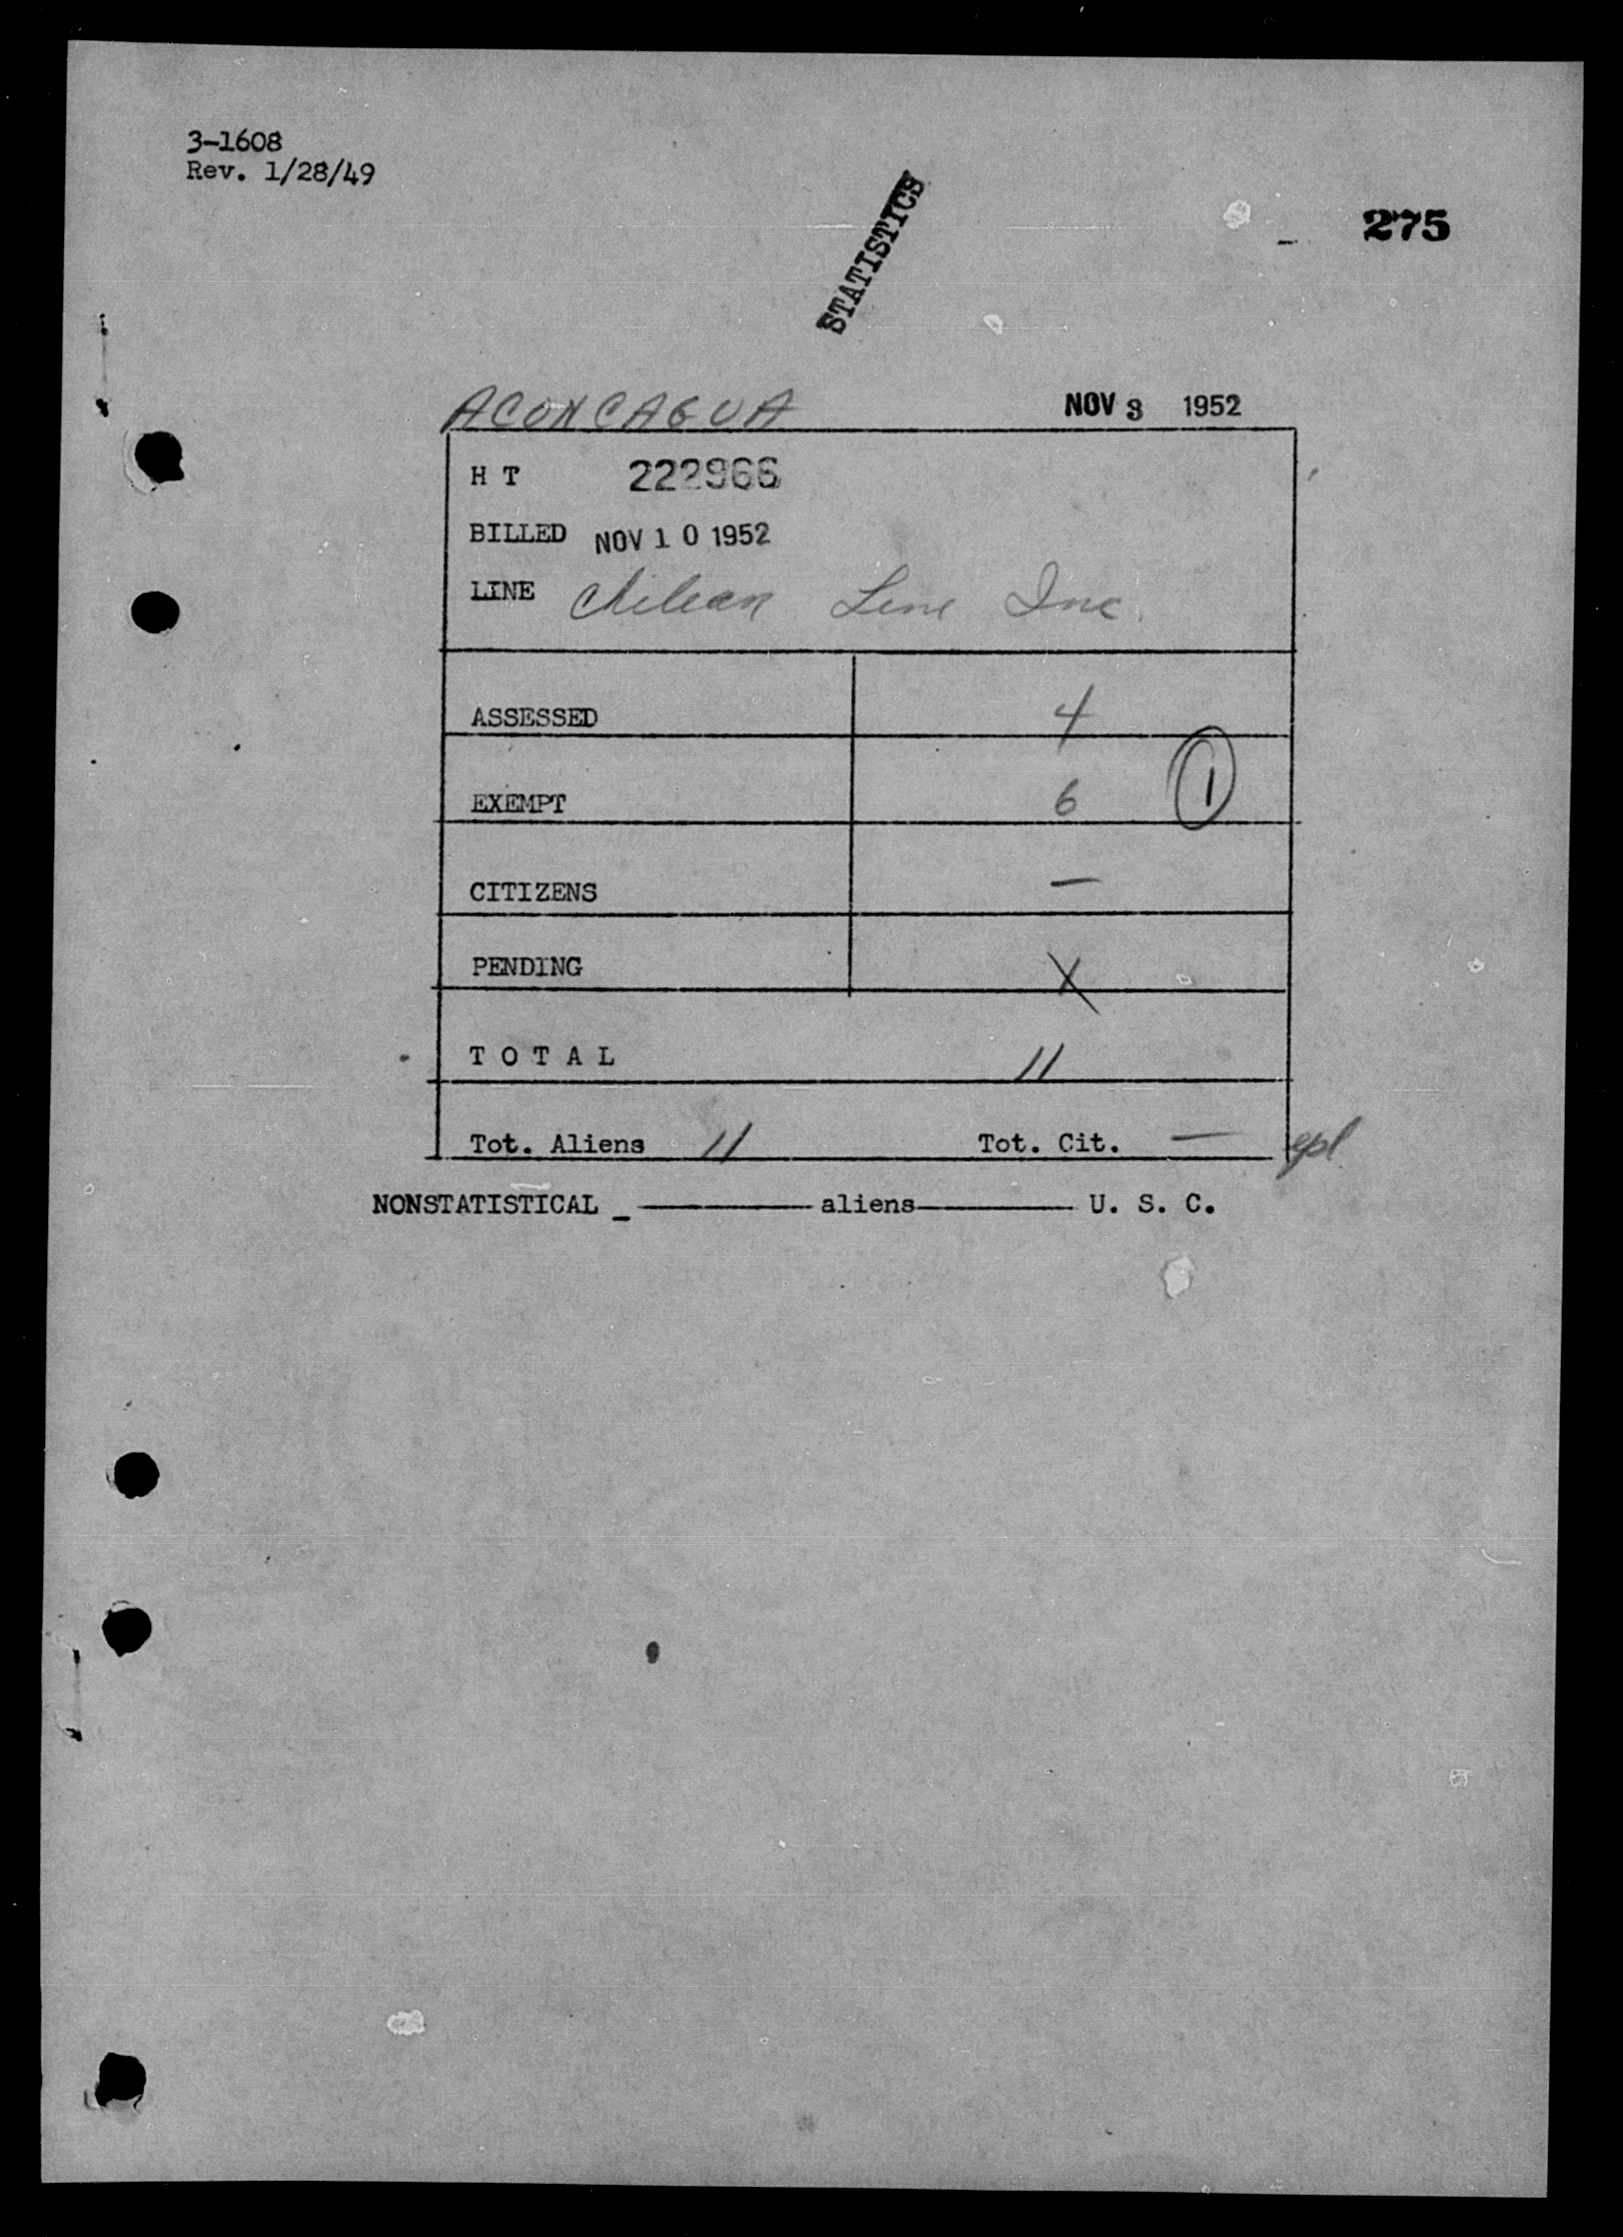 3-1608
Rev. 1/28/49
STATISTICS
275
ACONCAGUA NOV 3 1952
H T 222966
BILLED NOV 10 1952
LINE Chilean Line Inc.
ASSESSED 4
EXEMPT 6 1
CITIZENS —
PENDING X
T O T A L 11
Tot. Aliens 11 Tot. Cit. — epl
NONSTATISTICAL _ ———— aliens ———— U. S. C.